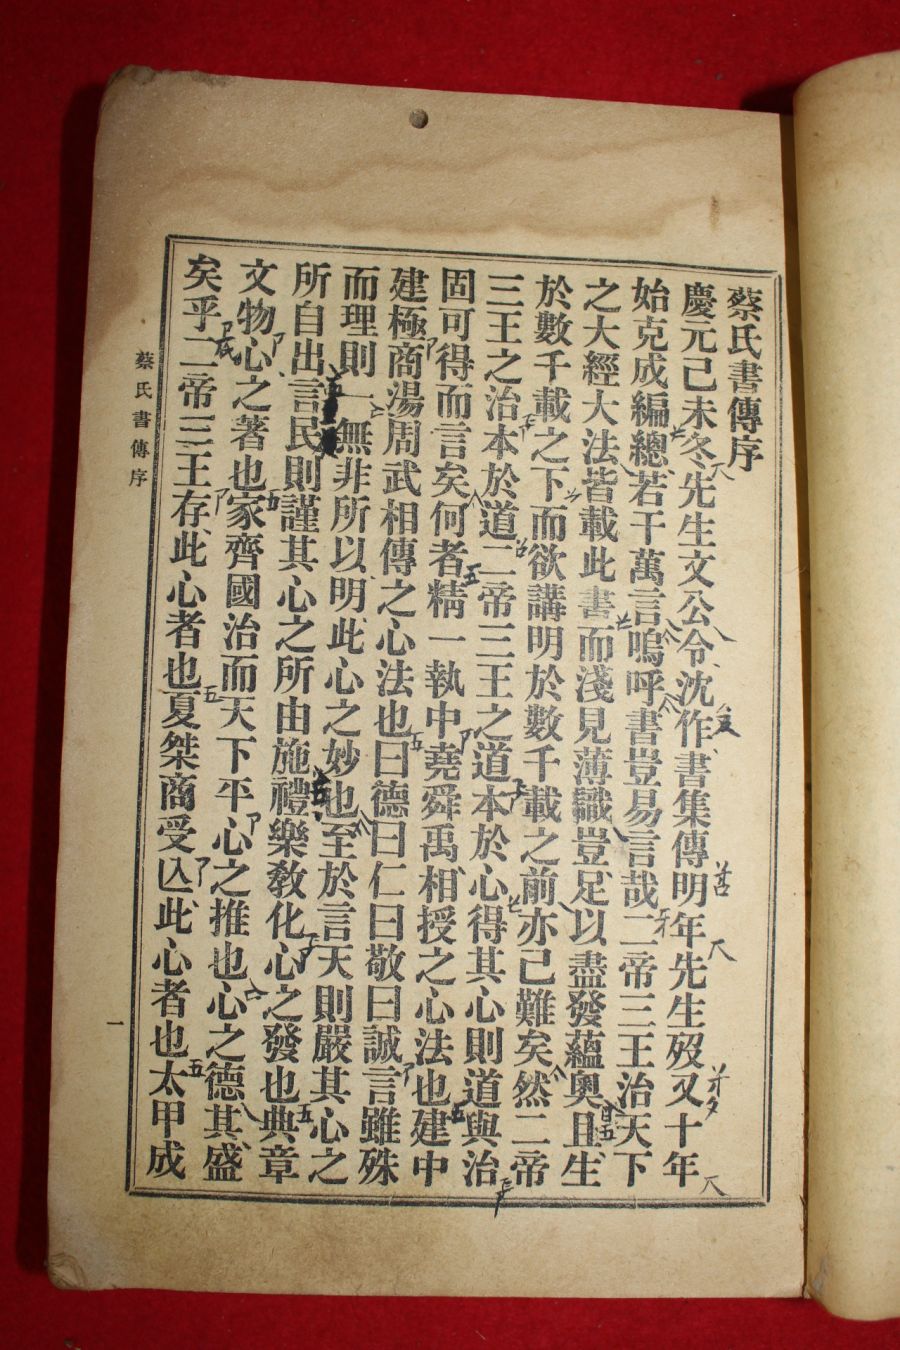 蔡氏書傳序
慶元己未冬先生文公令沈作書集傳明年先生歿又十年
始克成編總若干萬言嗚呼書豈易言哉二帝三王治天下
之大經大法皆載此書而淺見薄識豈足以盡發蘊奧且生
於數千載之下而欲講明於數千載之前亦已難矣然二帝
三王之治本於道二帝三王之道本於心得其心則道與治
固可得而言矣何者精一執中堯舜禹相授之心法也建中
建極商湯周武相傳之心法也曰德曰仁曰敬曰誠言雖殊
而理則一無非所以明此心之妙也至於言天則嚴其心之
所自出言民則謹其心之所由施禮樂敎化心之發也典章
文物心之著也家齊國治而天下平心之推也心之德其盛
矣乎二帝三王存此心者也夏桀商受亾此心者也太甲成
蔡氏書傳序
一